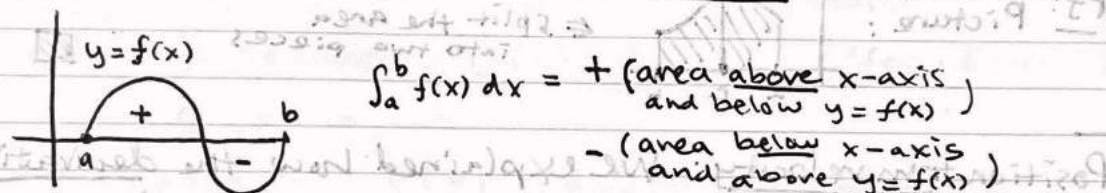 y = f(x)
+
a
b
-
∫ₐᵇ f(x) dx = + (area above x-axis
and below y = f(x))
- (area below x-axis
and above y = f(x))